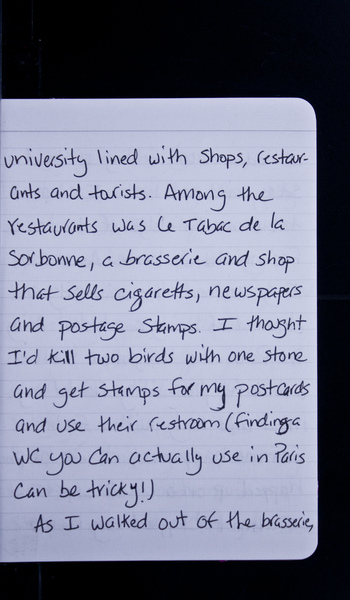 university lined with shops, restaur-
ants and tourists. Among the
restaurants was Le Tabac de la
Sorbonne, a brasserie and shop
that sells cigaretts, newspapers
and postage stamps. I thought
I'd kill two birds with one stone
and get stamps for my postcards
and use their restroom (finding a
WC you can actually use in Paris
can be tricky!)
As I walked out of the brasserie,